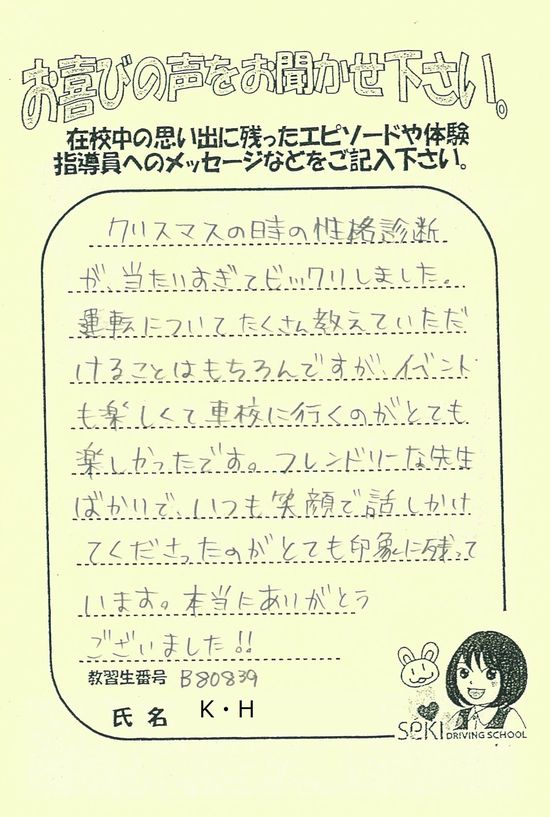 お喜びの声をお聞かせ下さい。
在校中の思い出に残ったエピソードや体験
指導員へのメッセージなどをご記入下さい。
クリスマスの日時の性格診断
が、当たりすぎてビックリしました。
運転についてたくさん教えていただ
けることはもちろんですが、イベント
も楽しくて車校に行くのがとても
楽しかったです。フレンドリーな先生
ばかりで、いつも笑顔で話しかけ
てくださったのがとても印象に残って
います。本当にありがとう
ございました!!
教習生番号 B80839
氏名 K・H
SeKI DRIVING SCHOOL